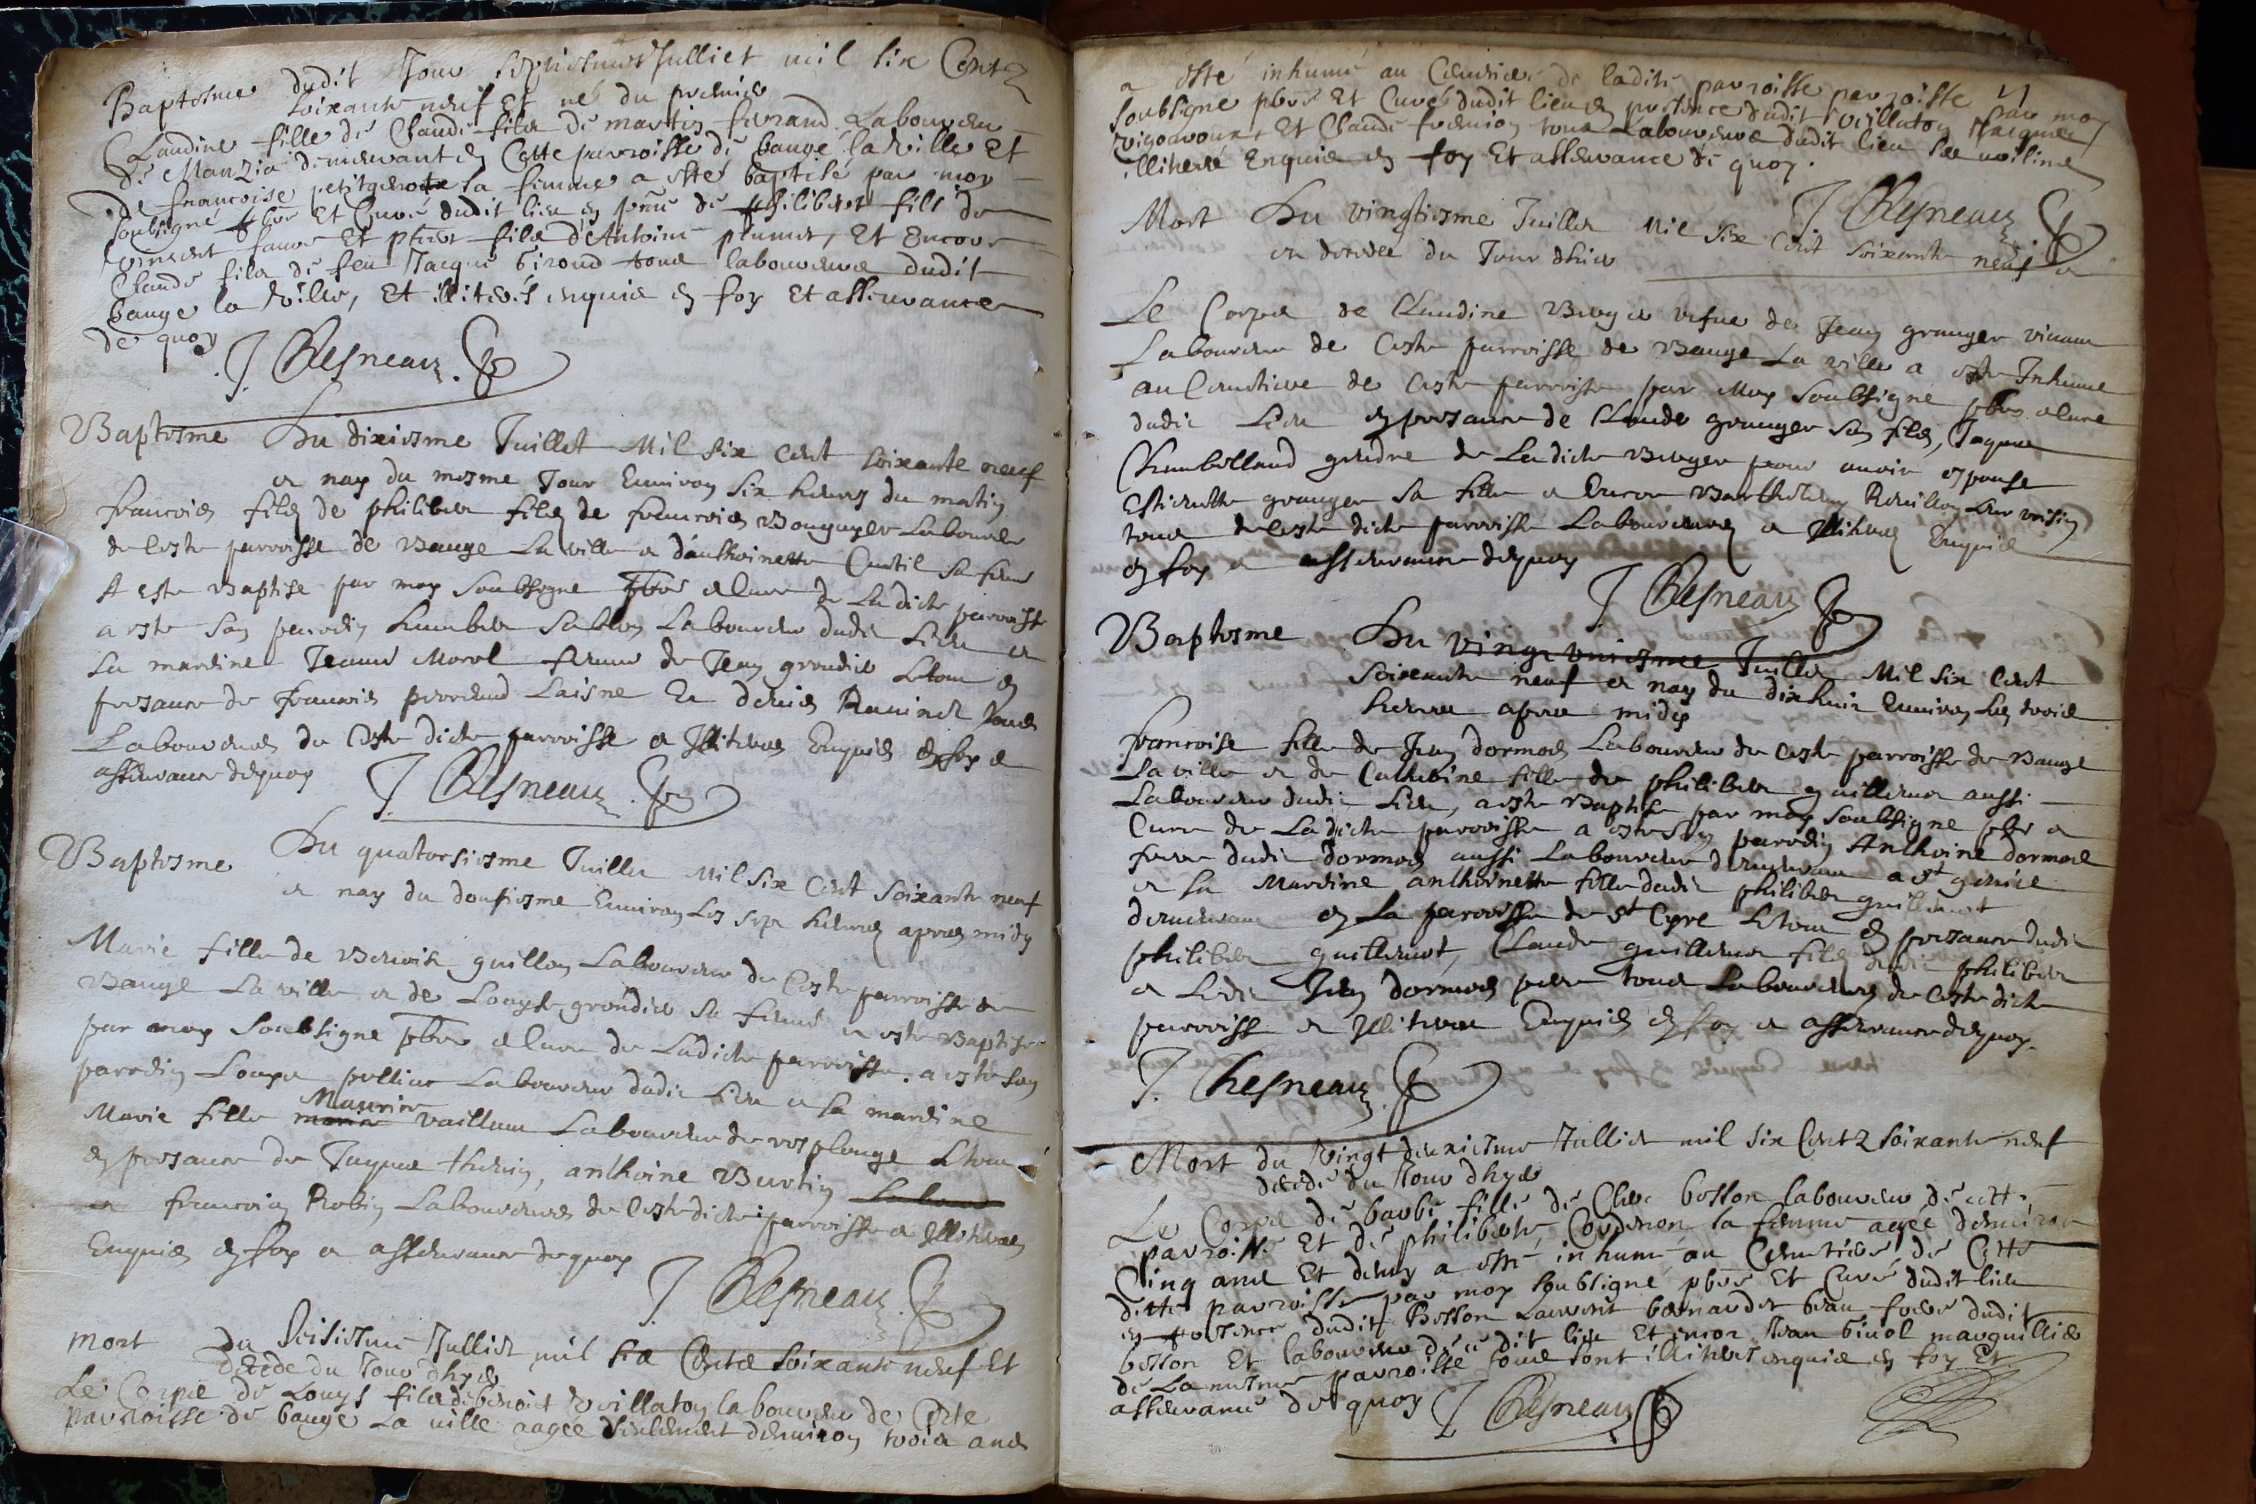 Baptesme dudit Jour septiesme Julliet mil six Centz
soixante neuf Et né du premier
Claudine fille de Claude fils de martin ferrand Laboureur
de Manzia demeurant en Cette parroisse de baugé la ville Et
De francoise petitgerotte sa femme a esté baptisé par moy
soubsigné pbre Et Curé dudit lieu en pnce de philibert fils de
vincent faure Et pierre fils d'Antoine plumet, Et Encore
Claude fils de feu Jacque Giroud tous laboureurs dudit
bauge la ville, Et illiterés enquis en foy Et asseurance
de quoy
J. Chesneau
Baptesme Du dixiesme Juillet Mil six cent soixante neuf
et nay du mesme Jour Environ six heures du matin
francois filz de philiber filz de francois Bouguyer Laboureur
de Ceste parroisse de Bauge La ville et d'anthoinette Curtil sa feme
A este Baptise par moy soubsigne pbre et Cure de La dicte parroisse
a este son parrein humber Sablon Laboureur dudit Lieu et
La marrine Jeanne Morel femme de Jean grondier Le tout en
presance de francois perreaud Laisne Et denis Ravinet tous
Laboureurs de Ceste dicte parroisse et Illiteres Enquis en foy et
asseurance dequoy
J. Chesneau
Baptesme Du quatorsiesme Juillet Mil six Cent Soixante neuf
et nay du dousiesme Environ Les sept heures apres midy
Marie fille de Benoist guillon Laboureur de Ceste parroisse de
Bauge La ville et de Louyse grondier sa feme a este Baptise
par moy soubsigne pbre et Cure de La dicte parroisse. a este son
parrein Loupe Laboureur dudit Lieu et la marrine
Maurice
Marie fille vaillant Laboureur de replonge Le tout
en presance de Jaques thevenin, anthoine Burtin
et francois Robin Laboureurs de Ceste dicte parroisse et Illiteres
Enquis en foy et asseurance dequoy
J. Chesneau
Mort du seisiesme Julliet mil six Centz soixante neuf Et
decede du Jour dhyer
Le Corps de Louys fils de benoit Revillaton laboureur de Cette
parroisse de bauge La ville aagée seulement denviron trois ans
a esté inhumé au Cemetiere de ladite parroisse parroisse par moy
soubsigne pbre Et Curé dudit lieu en presence dudit Revillaton Jacques
Vigouroux Et Claude fremion tous Laboureurs dudit lieu
illiteré Enquis en foy Et asseurance de quoy.
J Chesneau
Mort Du vingtiesme Juillet Mil Six Cent soixante neuf
et decedee du Jour dhier
Le Corps de Claudine Breyer vefve de Jean granger vivant
Laboureur de Ceste parroisse de Bauge La ville a este Inhume
au Cemetiere de Ceste parroisse par Moy soubsigne pbre et Cure
dudit Lieu en presance de Claude granger son filz, Jaques
Chambellaud gendre de La dicte Breyer pour avoir espouse
Estiennette granger sa fille et Encor Barthelemy Revillon Leur voisin
tous de Ceste dicte parroisse Laboureurs et Illiteres Enquis
en foy et asseurance dequoy
J Chesneau
Baptesme Du Vingt uniesme Juillet Mil six Cent
soixante neuf et nay du dixhuit Environ Les trois
heures apres midy
francoise fille de Jean dormoes Laboureur de Ceste parroisse de Bauge
La ville et de Catherine fille de philiber guillemot aussi
Laboureur dudit Lieu, a este Baptise par moy soubsigne pbre et
Cure de La dicte parroisse a este son parrein Anthoine dormoes
frere dudit dormoes aussi Laboureur demeurant a St genis
et La Marrine anthoinette fille dudit philiber guillemot
demeurant en La parroisse de St Cyre Le tout en presance dudit
philiber guillemot, Claude guillemot filz dudit philiber
et Ledit Jean dormoes pere tous Laboureurs de Ceste dicte
parroisse et Illiteres Enquis en foy et asseurance dequoy.
J. Chesneau
Mort du Vingt deuxiesme Julliet mil six Centz soixante neuf
decedé du Jour dhyer
Le Corps de barbe fille de Claude bosson laboureur de cette
parroisse Et de philiberte Corderon sa femme agée denviron
Cinq ans Et demy a esté inhumé au Cemetiere de Cette
ditte parroisse par moy soubsigné pbre Et Curé dudit lieu
en presence dudit Bosson Laurent bernardet beau frere dudit
bosson Et laboureur dece dit lieu Et encor Jean Givol marguillier
de La mesme parroisse tous sont illiterés enquis en foy Et
asseurance de quoy J Chesneau